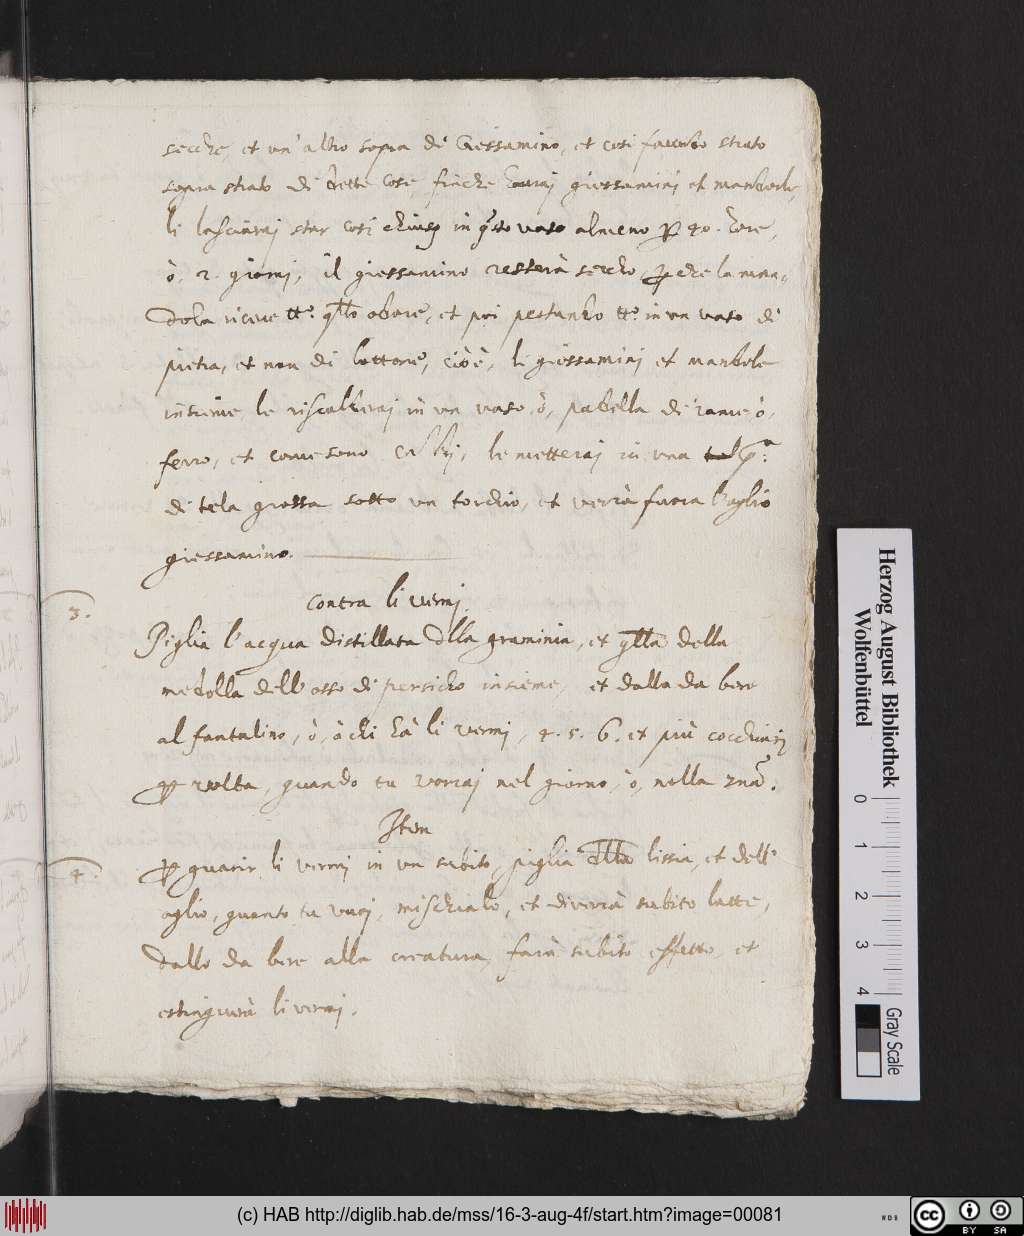 secche, et un'altro sopra di Giessamino, et cosi facendo strato
sopra strato di dette cose, finche hauraj giessaminj et mandorle,
li lasciaraj star cosi chiusj in q̃sto vaso almeno ꝑ 40. hore,
ò, 2. giornj, il giessamino resterà seccho, ꝑche la man-
dola riceue tt.° q̃llo odore, et poi pestando tt.° in un vaso di
pietra, et non di lottone, cioè, li giessaminj et mandole
insieme le riscalderaj in un vaso, ò, padella di rame ò,
ferro, et come sono caldj, le metteraj in una
di tela grossa sotto un torchio, et verrà fuora l'oglio
giessamino.
3.
Contra li vermj.
Piglia l'acqua distillata dlla graminia, et q̃lla della
medolla dell'osso di persicho insieme, et dalla da bere
al fantulino, ò, à chi hà li vermj, 4. 5. 6. et più cocchiarj
ꝑ volta, quando tu vorraj nel giorno, ò, nella
Item
4.
ꝑ guarir li vermj in un subito, piglia dlla lissia, et dell'
oglio, quanto tu vuoj, mischialo, et diverrà subito latte,
dallo da bere alla creatura, farà subito effetto, et
estinguerà li vermj.
Herzog August Bibliothek
Wolfenbüttel
0 1 2 3 4
Gray Scale
(c) HAB http://diglib.hab.de/mss/16-3-aug-4f/start.htm?image=00081
cc BY SA